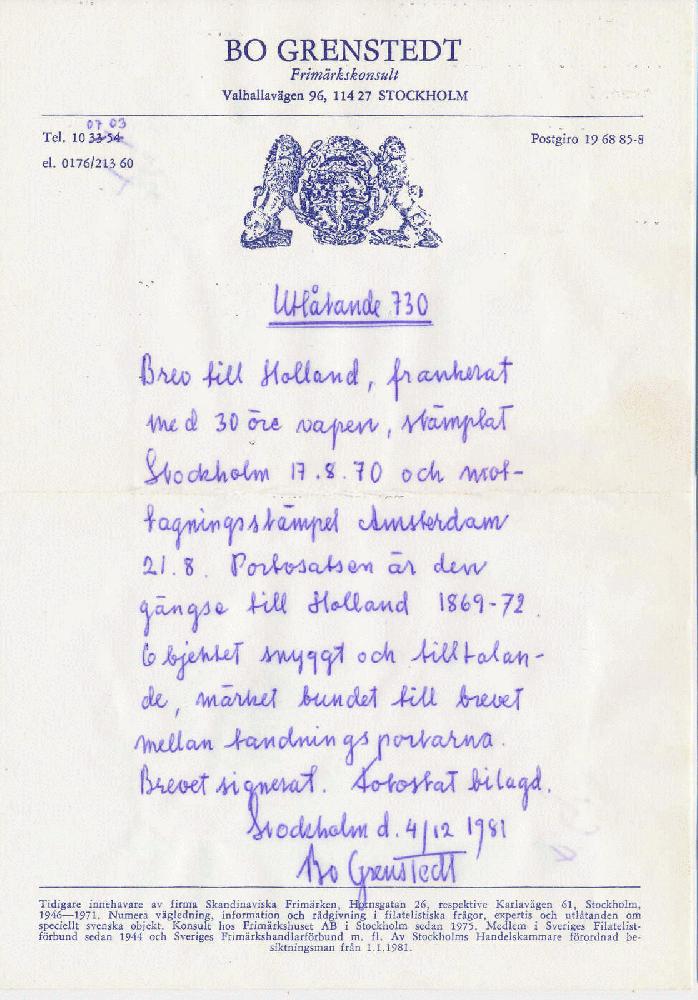 BO GRENSTEDT
Frimärkskonsult
Valhallavägen 96, 114 27 STOCKHOLM
07 03
Tel. 10 33 54
el. 0176/213 60
Postgiro 19 68 85-8
Utlåtande 730
Brev till Holland, frankerat
med 30 öre vapen, stämplat
Stockholm 17.8.70 och mot-
tagningsstämpel Amsterdam
21.8. Portosatsen är den
gängse till Holland 1869-72.
Objektet snyggt och tilltalan-
de, märket bundet till brevet
mellan tandningsportarna.
Brevet signerat. Fotostat bilagd.
Stockholm d. 4/12 1981
Bo Grenstedt
Tidigare innehavare av firma Skandinaviska Frimärken, Hornsgatan 26, respektive Karlavägen 61, Stockholm,
1946—1971. Numera vägledning, information och rådgivning i filatelistiska frågor, expertis och utlåtanden om
speciellt svenska objekt. Konsult hos Frimärkshuset AB i Stockholm sedan 1975. Medlem i Sveriges Filatelist-
förbund sedan 1944 och Sveriges Frimärkshandlarförbund m. fl. Av Stockholms Handelskammare förordnad be-
siktningsman från 1.1.1981.